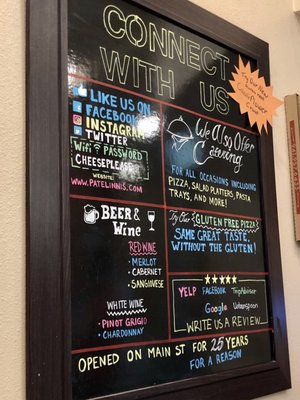 CONNECT
WITH US
Try Our New
Cauliflower
Crust
LIKE US ON
FACEBOOK
INSTAGRAM
TWITTER
Wifi PASSWORD
CHEESEPLEASE
WEBSITE:
WWW.PATELINNIS.COM
We Also Offer
Catering
FOR ALL OCCASIONS INCLUDING
PIZZA, SALAD PLATTERS, PASTA
TRAYS, AND MORE!
BEER &
Wine
RED WINE
• MERLOT
• CABERNET
• SANGIOVESE
WHITE WINE
• PINOT GRIGIO
• CHARDONNAY
Try Our GLUTEN FREE PIZZA
SAME GREAT TASTE,
WITHOUT THE GLUTEN!
YELP FACEBOOK TripAdvisor
Google Urbanspoon
WRITE US A REVIEW
OPENED ON MAIN ST FOR 25 YEARS
FOR A REASON